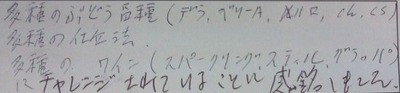 多種のぶどう品種(デラ、ベリーA、メルロ、ch、cs)
多種の仕立法、
多種の ワイン(スパークリング、スティル、グラッパ)
にチャレンジされていることに感銘しました。